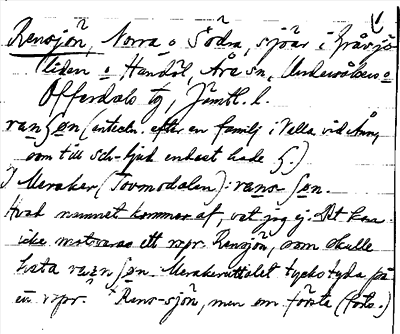 Rensjön, Norra o Södra, sjöar i Gråsjö-
liden o Handöl, Åre sn, Undersåkers o
Offerdals tg, Jämtl. l.
(enteckn. efter en familj i Valla vid Ånn,
som till sch-ljud endast hade ʃ.)
I Meraker (Tovmodalen): rans ʃøn.
Hvad namnet kommer af, vet jag ej. Det kan
icke motsvara ett rspr. Rensjön, som skulle
heta ʃøn. Merakeruttalet tycks tyda på
en rspr. "Rens-sjön", men en första (forts.)